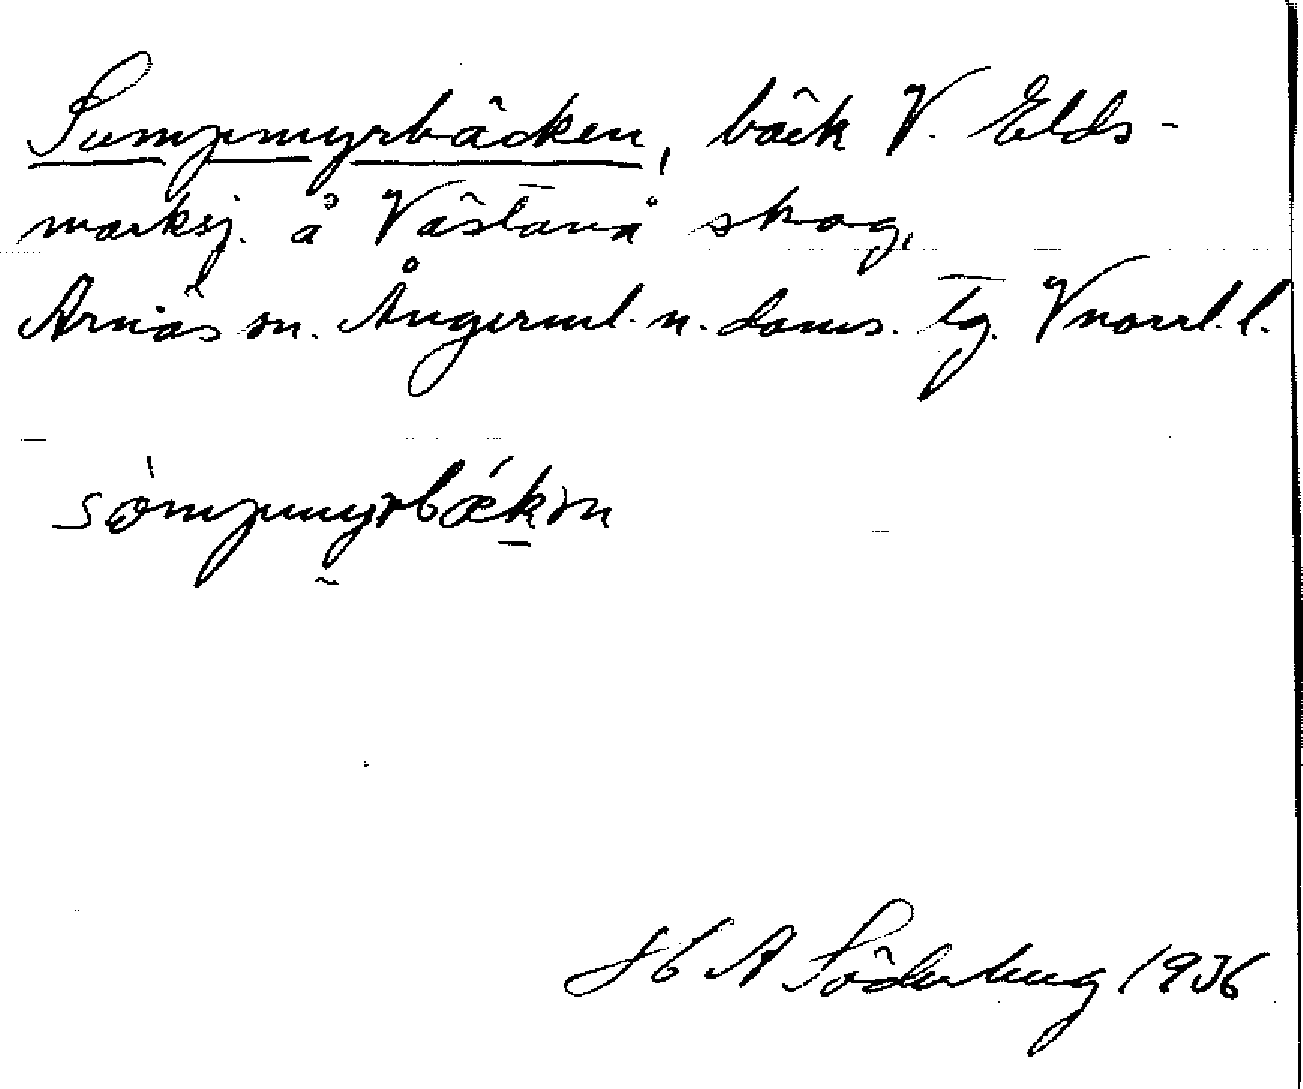 Sumpmyrbäcken, bäck V. Elds-
marksj. å Västanå skog,
Arnäs sn. Ångerml. n. doms. tg. Vnorrl. l.
sömpmyrbækən
H A Söderberg 1936